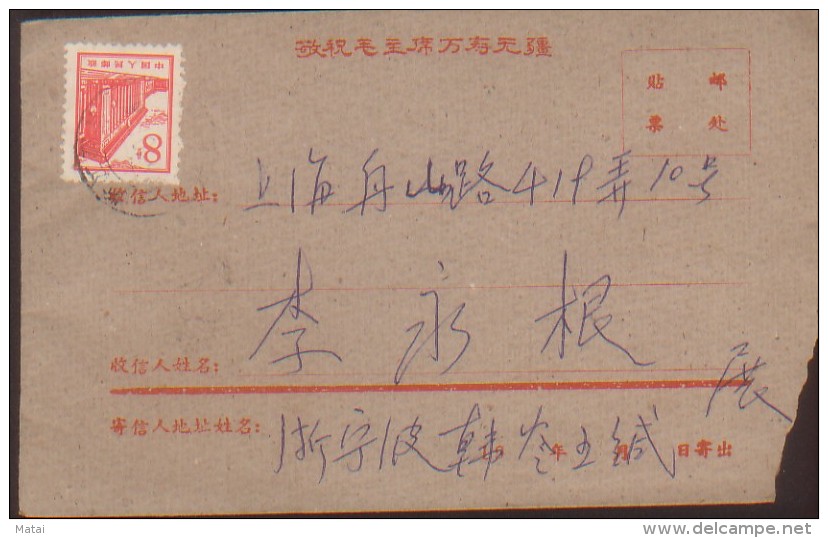 敬祝毛主席万寿无疆
中国人民邮政
8分
贴 邮
票 处
收信人地址：上海舟山路419弄10号
收信人姓名：李永根 展
寄信人地址姓名：浙宁波韩岭王缄
年 月 日寄出
Matai
delcampe.net